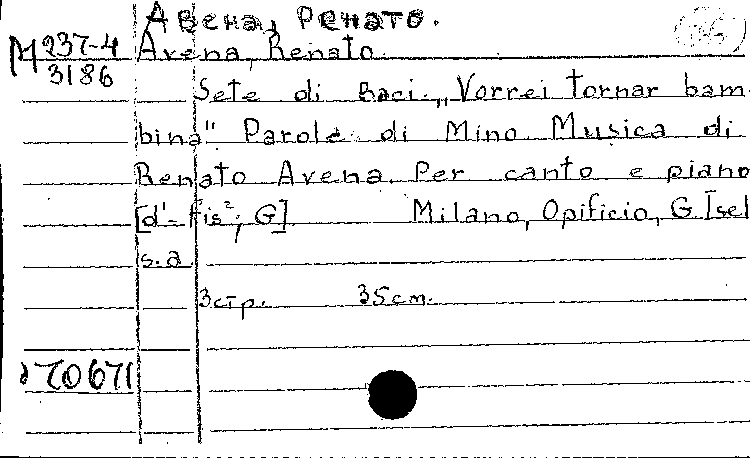 Авена, Ренато.
М 237-4
3186
Avena, Renato.
Sete di Baci. „Vorrei tornar bam-
bina" Parole di Mino. Musica di
Renato Avena. Per canto e piano
[d'-fis²; G] Milano, Opificio, G. Isel
s.a.
3стр. 35см.
70671